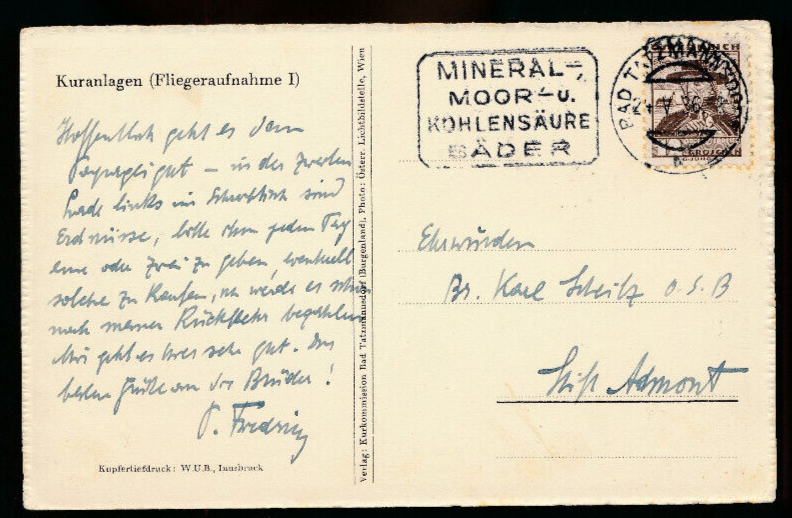 Kuranlagen (Fliegeraufnahme I)
Hoffentlich geht es dem
Papagei gut – in der zweiten
Lade links im Schreibtisch sind
Erdnüsse, bitte ihm jeden Tag
eine oder zwei zu geben, eventuell
solche zu kaufen, ich werde es schon
nach meiner Rückkehr bezahlen
Mir geht es hier sehr gut. Die
besten Grüße an die Brüder!
P.
Kupfertiefdruck: W.U.B., Innsbruck
Verlag: Kurkommission Bad Tatzmannsdorf (Burgenland), Photo: Österr. Lichtbildstelle, Wien
MINERAL-,
MOOR- u.
KOHLENSÄURE
BÄDER
BAD TATZMANNSDORF
ÖSTERREICH
GROSCHEN
Ehrwürden
Br. Karl O.S.B
Stift Admont